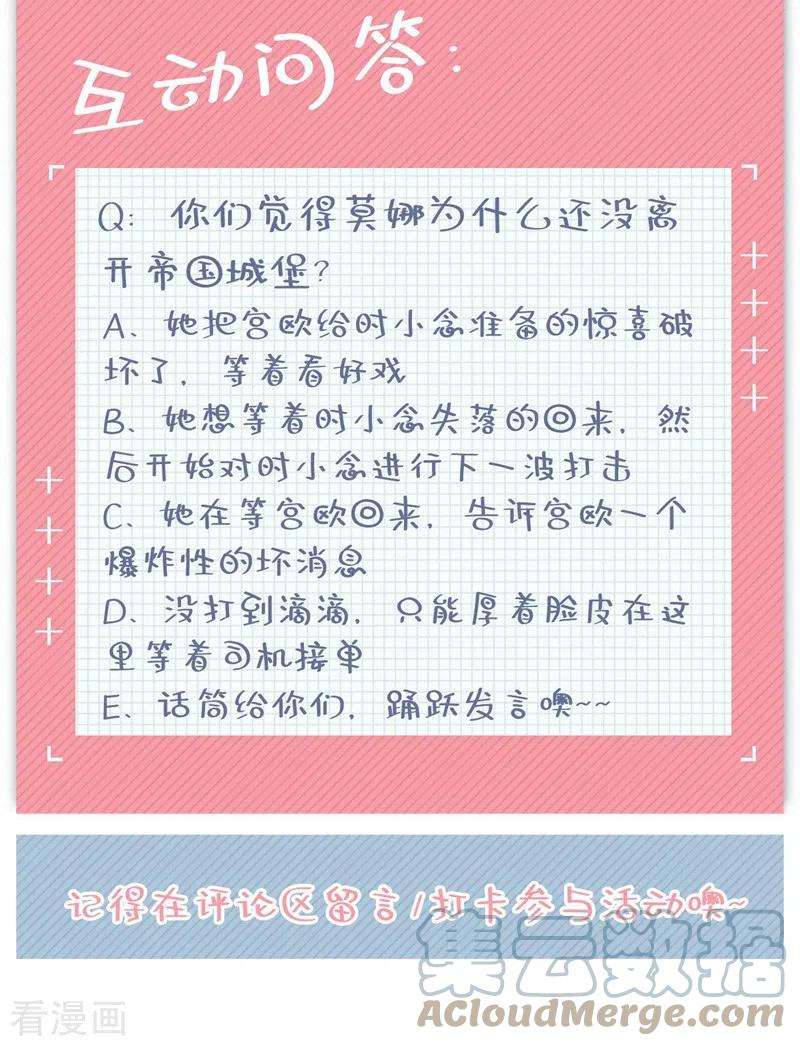 互动问答：
Q: 你们觉得莫娜为什么还没离
开帝国城堡？
A、她把宫欧给时小念准备的惊喜破
坏了，等着看好戏
B、她想等着时小念失落的回来，然
后开始对时小念进行下一波打击
C、她在等宫欧回来，告诉宫欧一个
爆炸性的坏消息
D、没打到滴滴，只能厚着脸皮在这
里等着司机接单
E、话筒给你们，踊跃发言噢~~
记得在评论区留言/打卡参与活动噢~
集云数据
看漫画
ACloudMerge.com